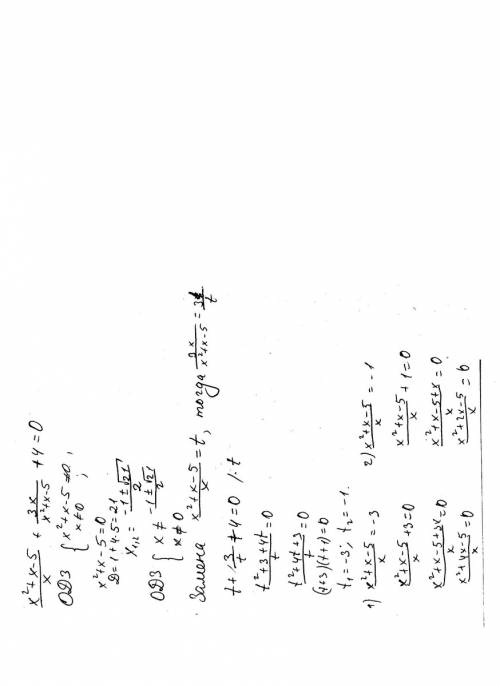 (x²+x-5)/x + 3x/(x²+x-5) + 4 = 0
ОДЗ { x²+x-5≠0; x≠0;
x²+x-5=0
D=1+4·5=21
x₁,₂ = (-1±√21)/2
ОДЗ { x ≠ (-1±√21)/2 x≠0
Замена (x²+x-5)/x = t, тогда 3x/(x²+x-5) = 3/t
t + 3/t + 4 = 0 /·t
(t²+3+4t)/t = 0
(t²+4t+3)/t = 0
(t+3)(t+1)=0
t₁=-3; t₂=-1.
1) (x²+x-5)/x = -3
(x²+x-5)/x + 3 = 0
(x²+x-5+3x)/x = 0
(x²+4x-5)/x = 0
2) (x²+x-5)/x = -1
(x²+x-5)/x + 1 = 0
(x²+x-5+x)/x = 0
(x²+2x-5)/x = 0